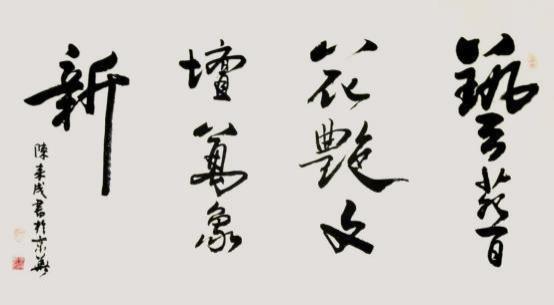 藝苑百
花艷文
壇萬象
新
陳来成書於京華